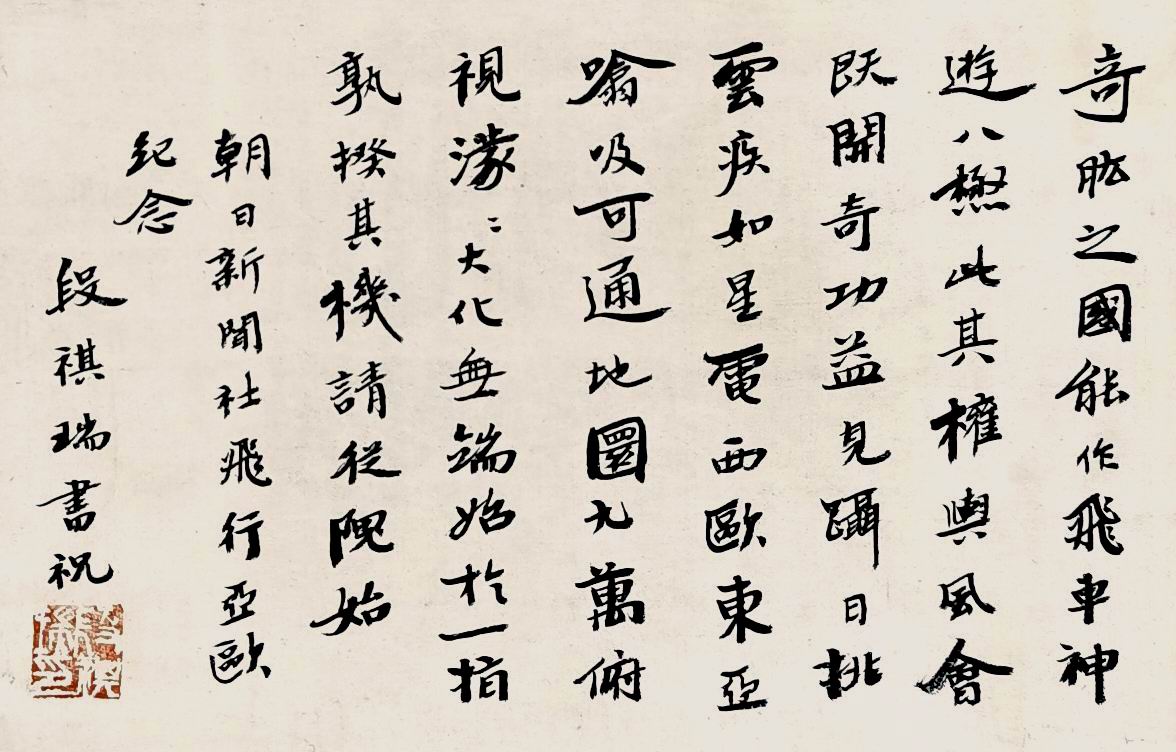 奇肱之國能作飛車神
遊八懋此其權輿風會
既開奇功益見躡日挑
雲疾如星電西歐東亞
噏吸可通地圜九萬俯
視濛〻大化無端始於一指
孰揆其機請從隗始
朝日新聞社飛行亞歐
紀念
段祺瑞書祝